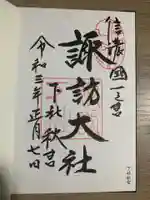 信濃國一之宮
諏訪大社
下社秋宮
令和三年正月七日